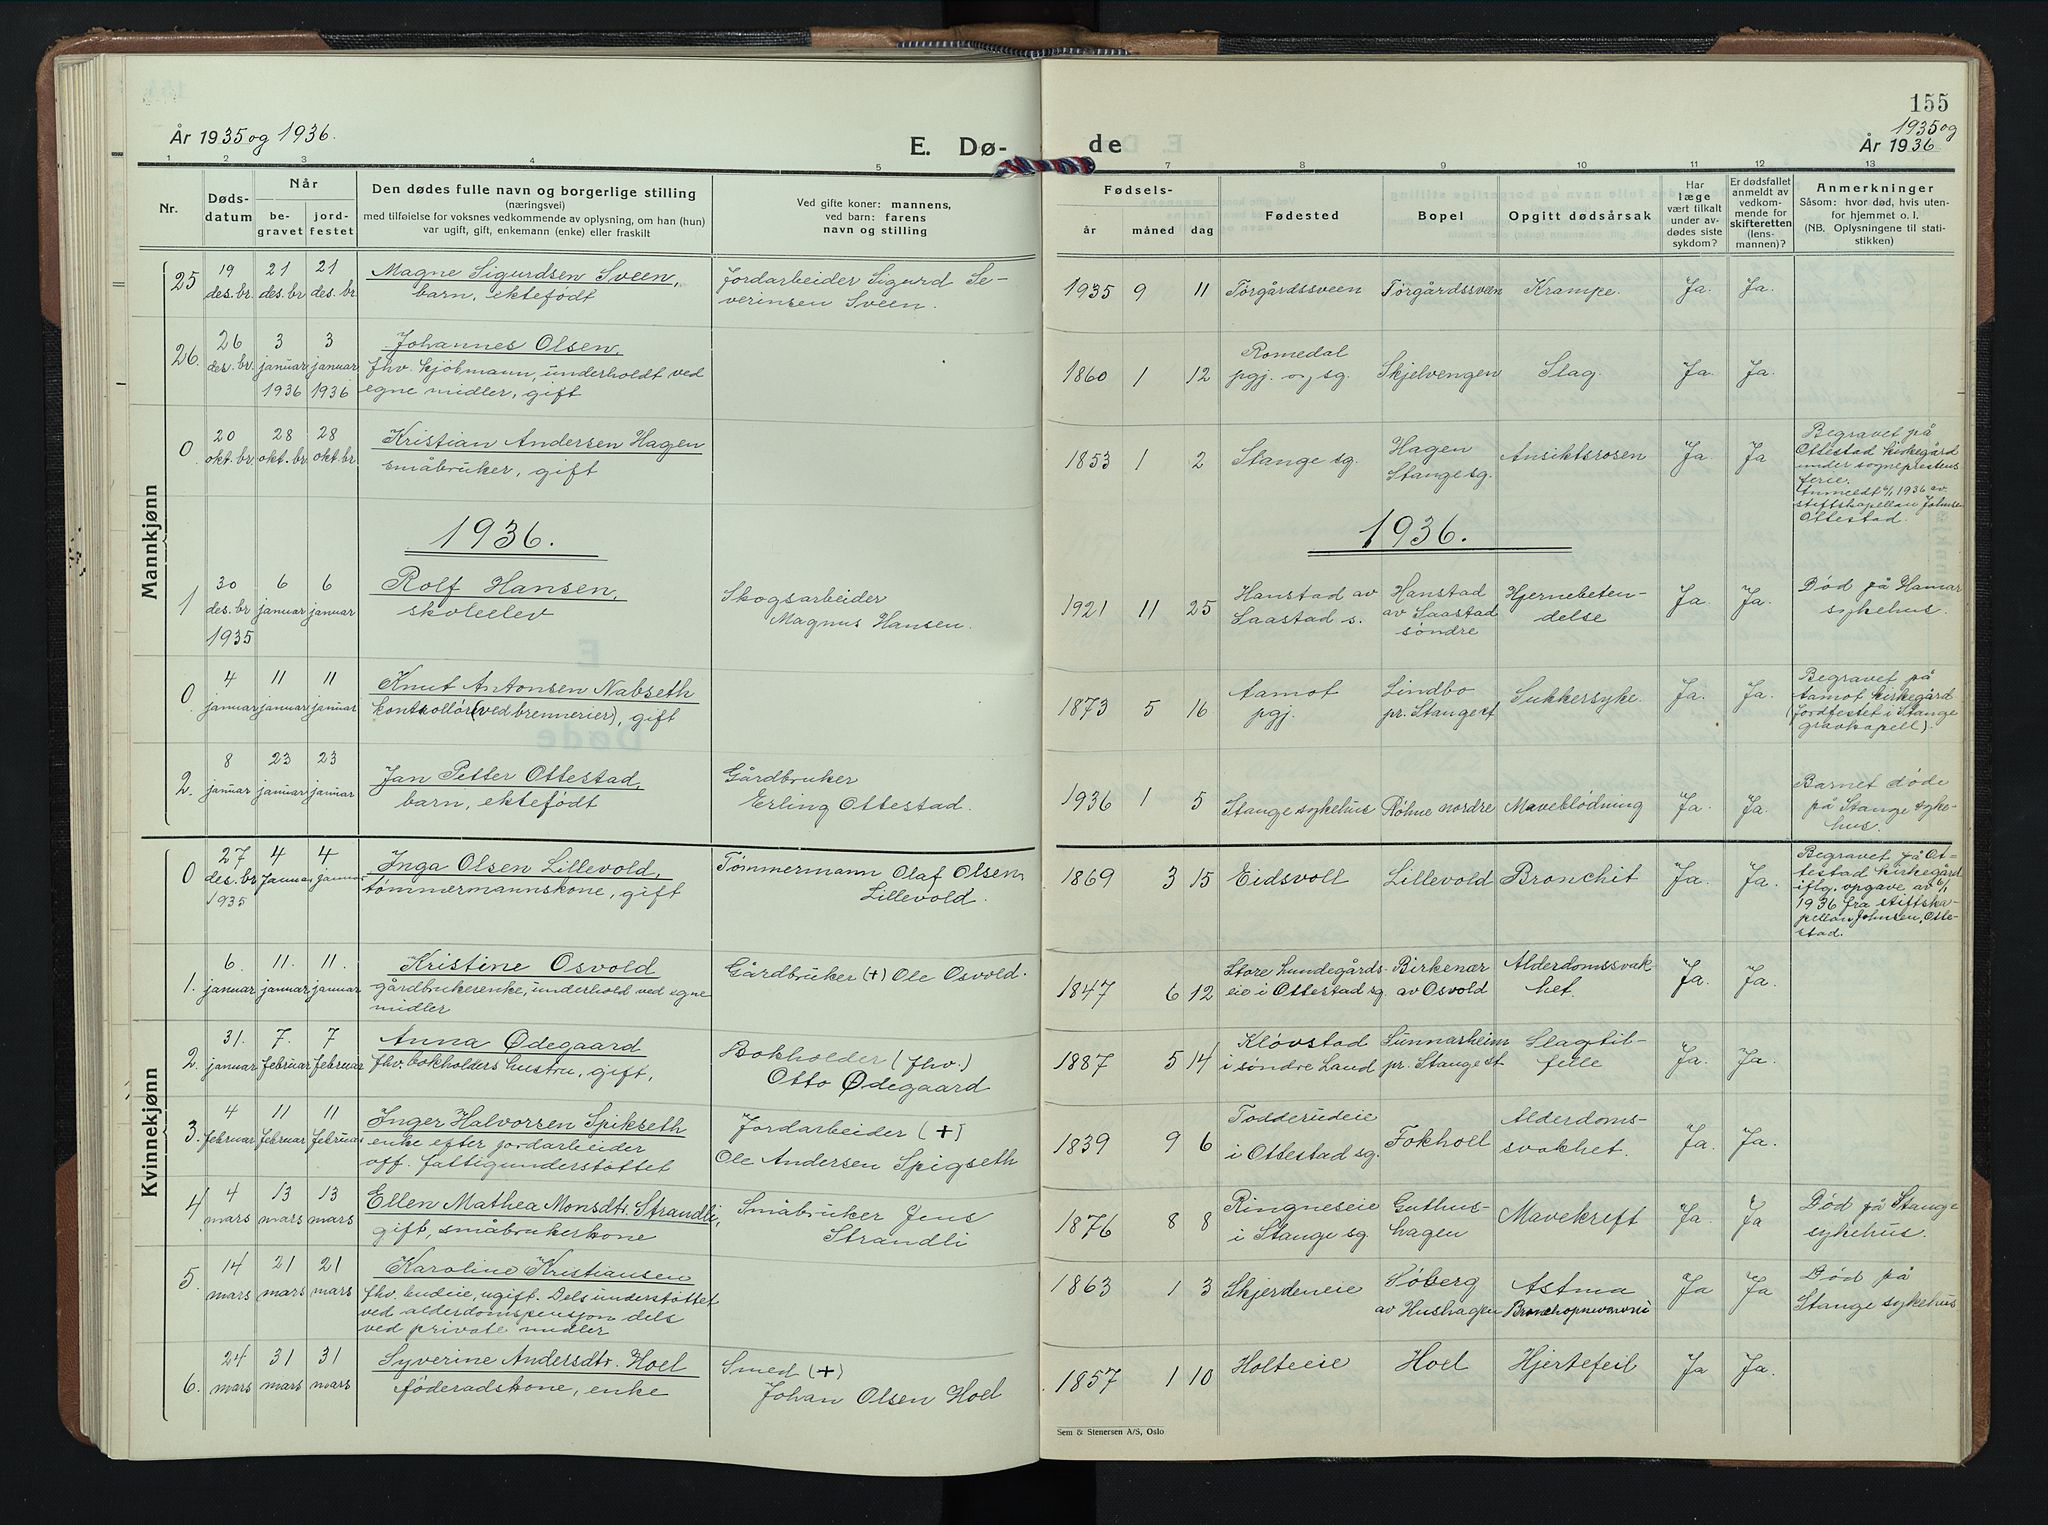 155
År 1935 og 1936.
E. Dø-
de
1935 og
År 1936
1 2 3 4 5 7 8 9 10 11 12 13
Nr.
Døds-
datum
Når
be-
gravet
jord-
festet
Den dødes fulle navn og borgerlige stilling
(næringsvei)
med tilføielse for voksnes vedkommende av oplysning, om han (hun)
var ugift, gift, enkemann (enke) eller fraskilt
Ved gifte koner: mannens,
ved barn: farens
navn og stilling
Fødsels-
år måned dag
Fødested
Bopel
Opgitt dødsårsak
Har
læge
vært tilkalt
under av-
dødes siste
sykdom?
Er dødsfallet
anmeldt av
vedkom-
mende for
skifteretten
(lens-
mannen)?
Anmerkninger
Såsom: hvor død, hvis uten-
for hjemmet o. l.
(NB. Oplysningene til stati-
stikken)
Mannkjønn
25 19 des.br 21 des.br 21 des.br
Magne Sigurdsen Sveen,
barn, ektefødt
Jordarbeider Sigurd Se-
verinsen Sveen.
1935 9 11 Törgårdssveen Törgårdssveen Krampe. Ja. Ja.
26. 26 des.br. 3 januar 1936 3 januar 1936
Johannes Olsen,
fhv. kjöbmann, underholdt ved
egne midler, gift
1860 1 12
Romedal
pgj. og sg.
Skjelvengen Slag. Ja. Ja.
0. 20 okt.br 28 okt.br 28 okt.br
Kristian Andersen Hagen
småbruker, gift
1853 1 2 Stange sg.
Hagen
Stange sg.
Ansiktsrosen Ja. Ja
Begravet på
Ottestad kirkegård
under sogneprestens
ferie.
Anmeldt 6/1 1936 av
stiftskapellan Johnsen
Ottestad.
1936.
1936.
1 30 des.br 1935 6 januar 6 januar
Rolf Hansen,
skoleelev
Skogsarbeider
Magnus Hansen.
1921 11 25
Hanstad av
Saastad s.
Hanstad
av Saastad
søndre
Hjernebeten-
delse
Ja. Ja.
Död på Hamar
sykehus.
0. 4 januar 11 januar 11 januar
Knut Antonsen Nabseth
kontrollör (ved brennerier), gift
1873 5 16
Aamot
pgj.
Lindbo
pr. Stange st
Sukkersyke. Ja. Ja.
Begravet på
Aamot kirkegård
(jordfestet i Stange
gravkapell).
2. 8 januar 23 januar 23 januar
Jan Petter Ottestad,
barn, ektefødt
Gårdbruker
Erling Ottestad.
1936 1 5 Stange sykehus Röhne nordre Maveblödning Ja. Ja.
Barnet döde
på Stange syke-
hus.
Kvinnekjønn
0 27 des.br 1935 4 januar 4 januar
Inga Olsen Lillevold,
tømmermannskone, gift
Tømmermann Olaf Olsen
Lillevold.
1869 3 15 Eidsvoll Lillevold Bronchit Ja. Ja.
Begravet på Ot-
testad kirkegård
iflg. opgave av 6/1
1936 fra stiftska-
pellan Johnsen, Otte-
stad.
1. 6. januar 11. januar 11. januar
Kristine Osvold
gårdbrukerenke, underhold ved egne
midler
Gårdbruker (+) Ole Osvold.
1847 6 12
Store Lundegårds-
eie i Ottestad sg.
Birkenær
av Osvold
Alderdomssvak
het.
Ja. Ja.
2. 31. januar 7. februar 7 februar
Anna Ødegaard
fhv. bokholders hustru, gift,
Bokholder (fhv.)
Otto Ødegaard
1887 5 14
Klövstad
i søndre Land
Sunnarheim
pr. Stange st
Slagtil-
felle
Ja. Ja.
3. 4 februar 11 februar 11 februar
Inger Halvorsen Spikseth
enke efter jordarbeider
off. fattigunderstøttet
Jordarbeider (+)
Ole Andersen Spigseth
1839 9 6
Todderudeie
i Ottestad sg.
Fokhoel
Alderdoms-
svakhet.
Ja. Ja.
4 4 mars 13 mars 13 mars
Ellen Mathea Monsdtr. Strandli,
gift, småbrukerkone
Småbruker Jens
Strandli
1876 8 8
Ringneseie
i Stange sg
Guthus-
hagen
Mavekreft Ja. Ja
Död på Stange
sykehus.
5. 14 mars 21 mars 21 mars
Karoline Kristiansen
fhv. budeie, ugift. Dels understøttet
ved alderdomspensjon dels
ved private midler
1863 1 3 Skjerdeneie
Söberg
av Hushagen
Astma
Bronchopneumoni
Ja Ja
Död på
Stange sykehus
6. 24 mars 31 mars 31 mars
Syverine Andersdtr. Hoel
føderadskone, enke
Smed (+)
Johan Olsen Hoel
1857 1 10 Holteeie Hoel Hjertefeil Ja Ja.
Sem & Stenersen A/S, Oslo